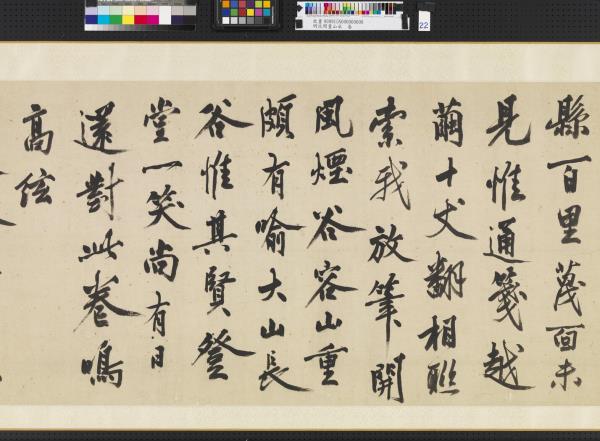 縣百里蔑面未
見惟通箋越
繭十丈翻相聯
索我放筆開
風煙谷容山重
頗有喻大山長
谷惟其賢登
堂一笑尚有日
還對此卷鳴
高絃
22